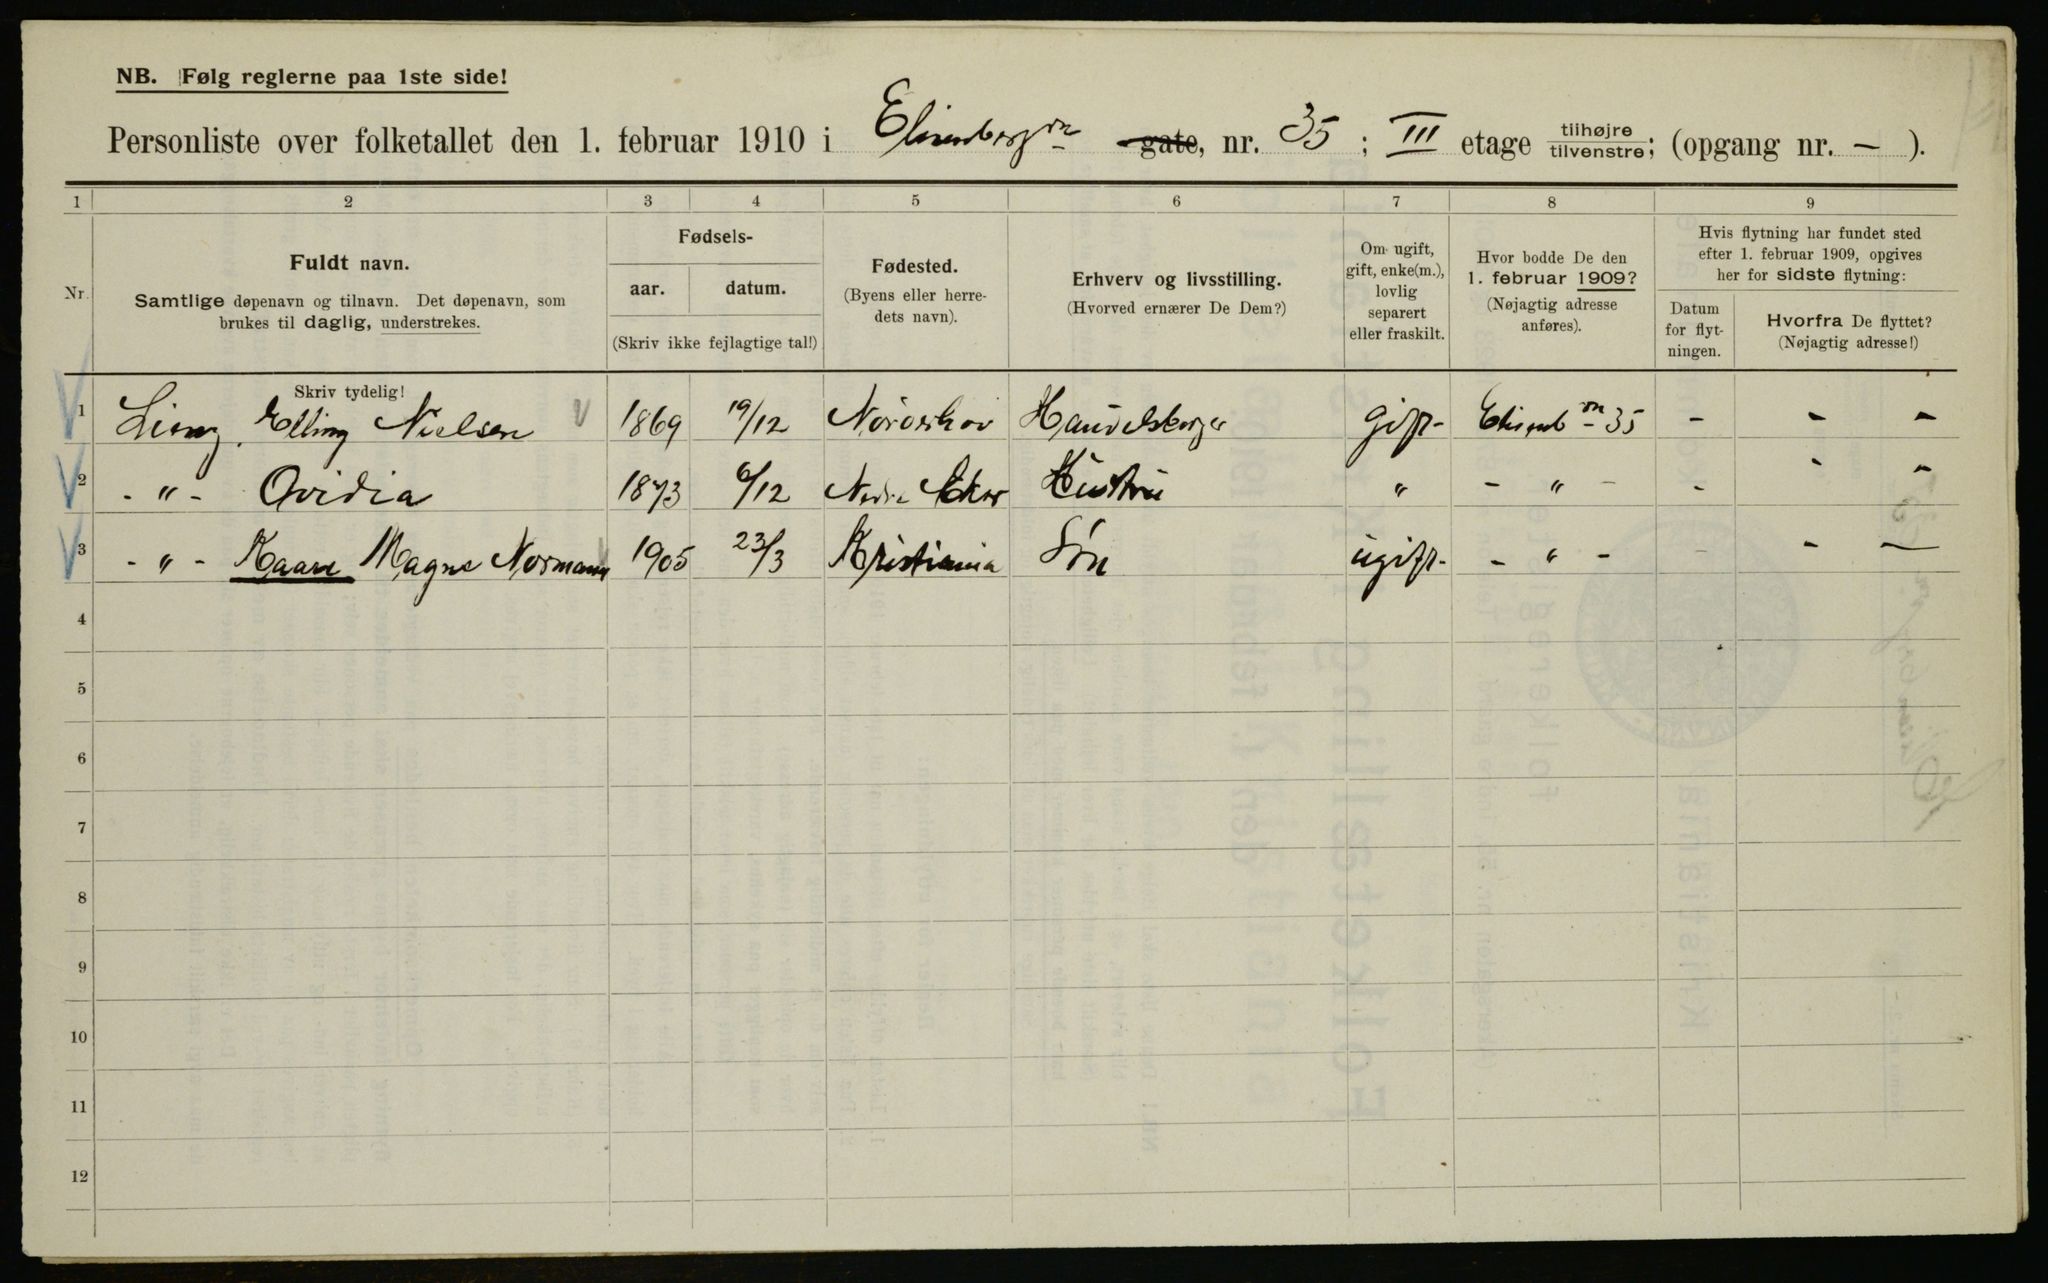 NB. Følg reglerne paa 1ste side!
Personliste over folketallet den 1. februar 1910 i Elisenbergvn gate, nr. 35 ; III etage tilhøjre tilvenstre; (opgang nr. - ).
1 2 3 4 5 6 7 8 9
Nr.
Fuldt navn.
Samtlige døpenavn og tilnavn. Det døpenavn, som
brukes til daglig, understrekes.
Skriv tydelig!
Fødsels-
aar. datum.
(Skriv ikke fejlagtige tal!)
Fødested.
(Byens eller herre-
dets navn).
Erhverv og livsstilling.
(Hvorved ernærer De Dem?)
Om ugift,
gift, enke(m.),
lovlig
separert
eller fraskilt.
Hvor bodde De den
1. februar 1909?
(Nøjagtig adresse
anføres).
Hvis flytning har fundet sted
efter 1. februar 1909, opgives
her for sidste flytning:
Datum
for flyt-
ningen.
Hvorfra De flyttet?
(Nøjagtig adresse!)
1 Elling Nielsen 1869 19/12 Norderhov Handelsborger gift- Elisenb vn 35 - - -
2 - " - Ovidia 1873 6/12 Nedre Eker Hustru " - " - - - -
3 - " - Kaare Magne Normann 1905 23/3 Kristiania Søn ugift- - " - - - -
4
5
6
7
8
9
10
11
12